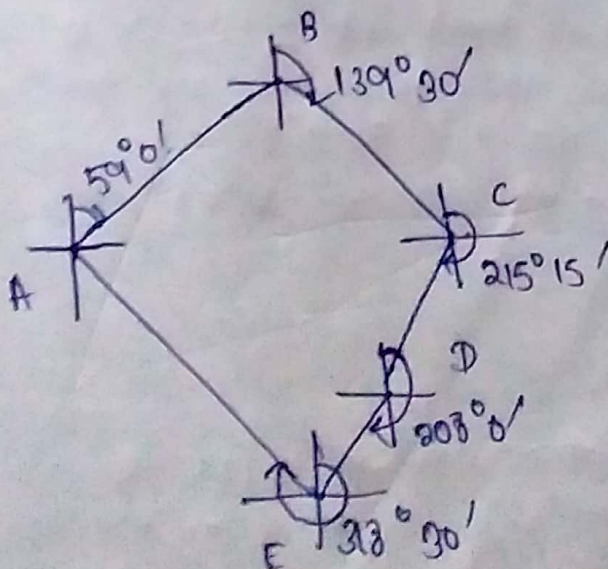 B
139° 30'
59° 0'
C
A
215° 15'
D
208° 0'
E
313° 30'